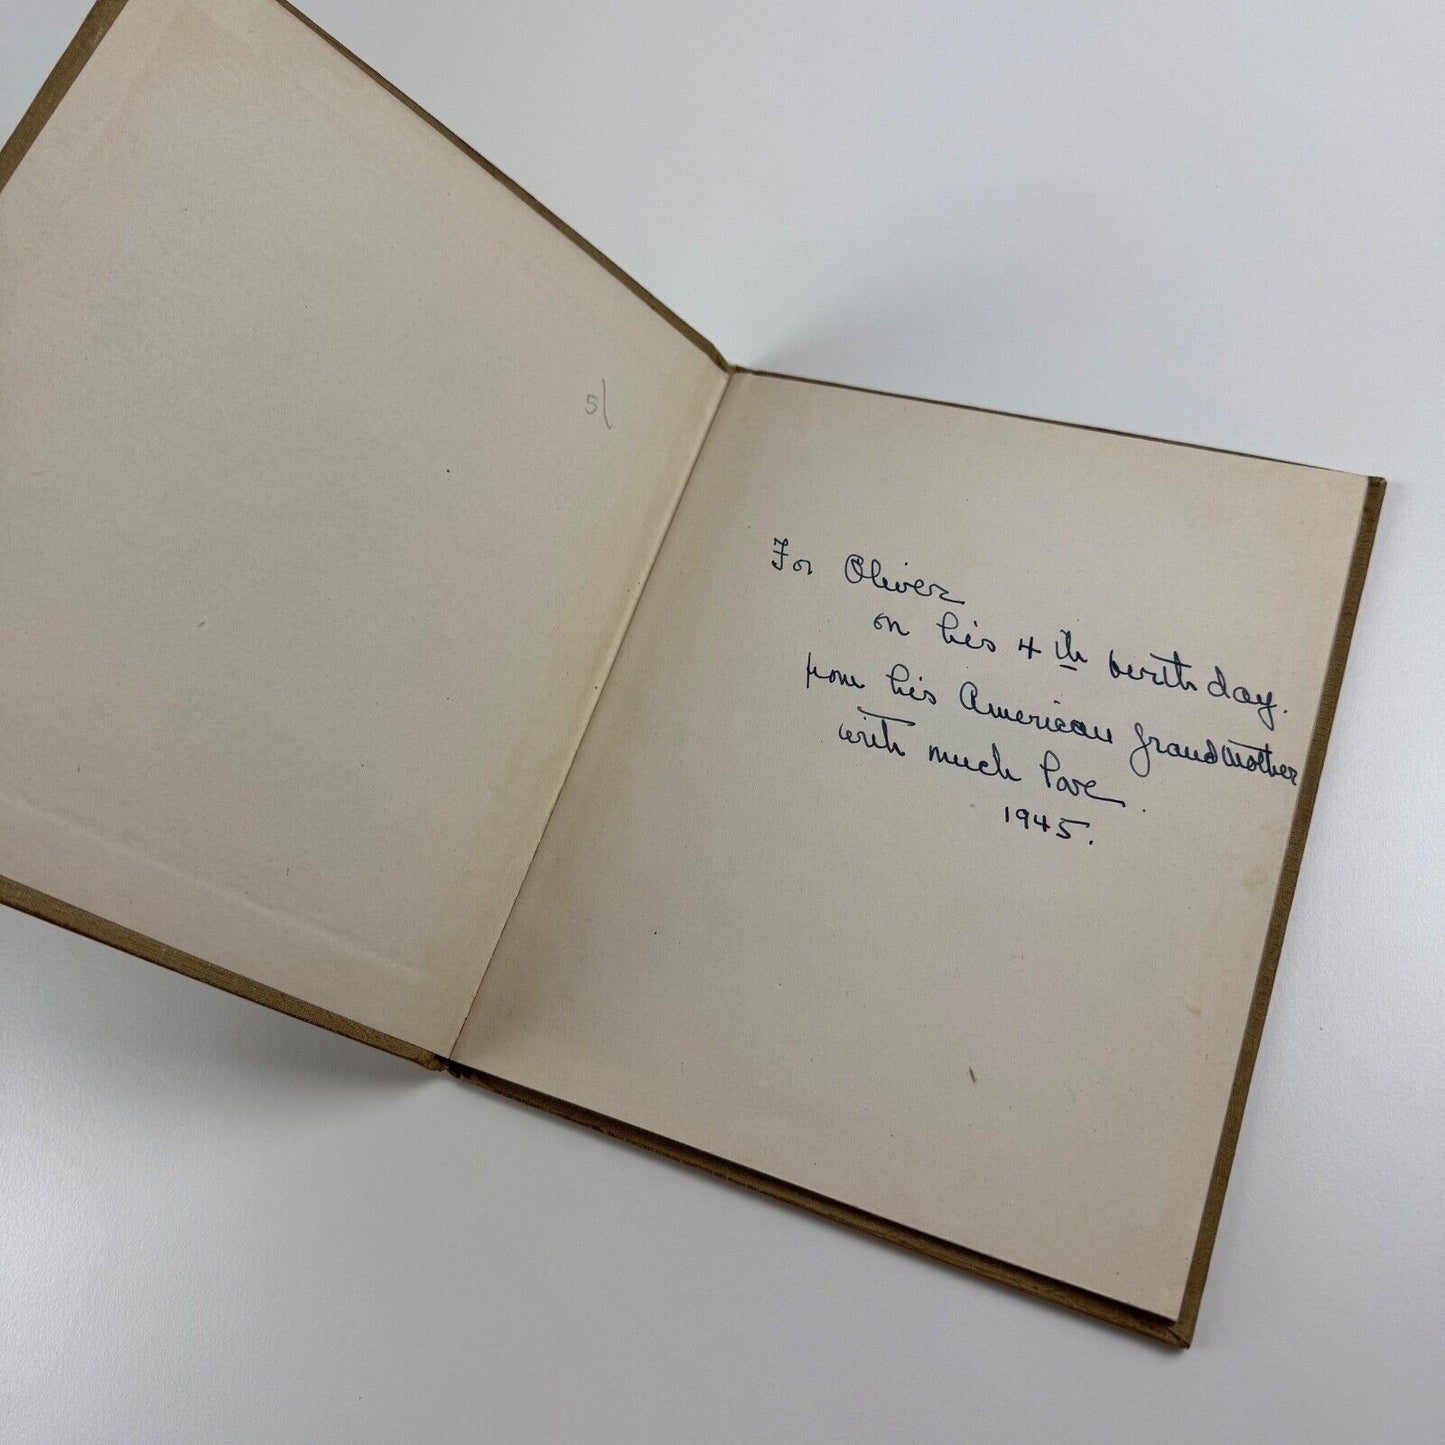 5\
For Oliver
on his 4th birthday.
from his American grandmother
with much love.
1945.